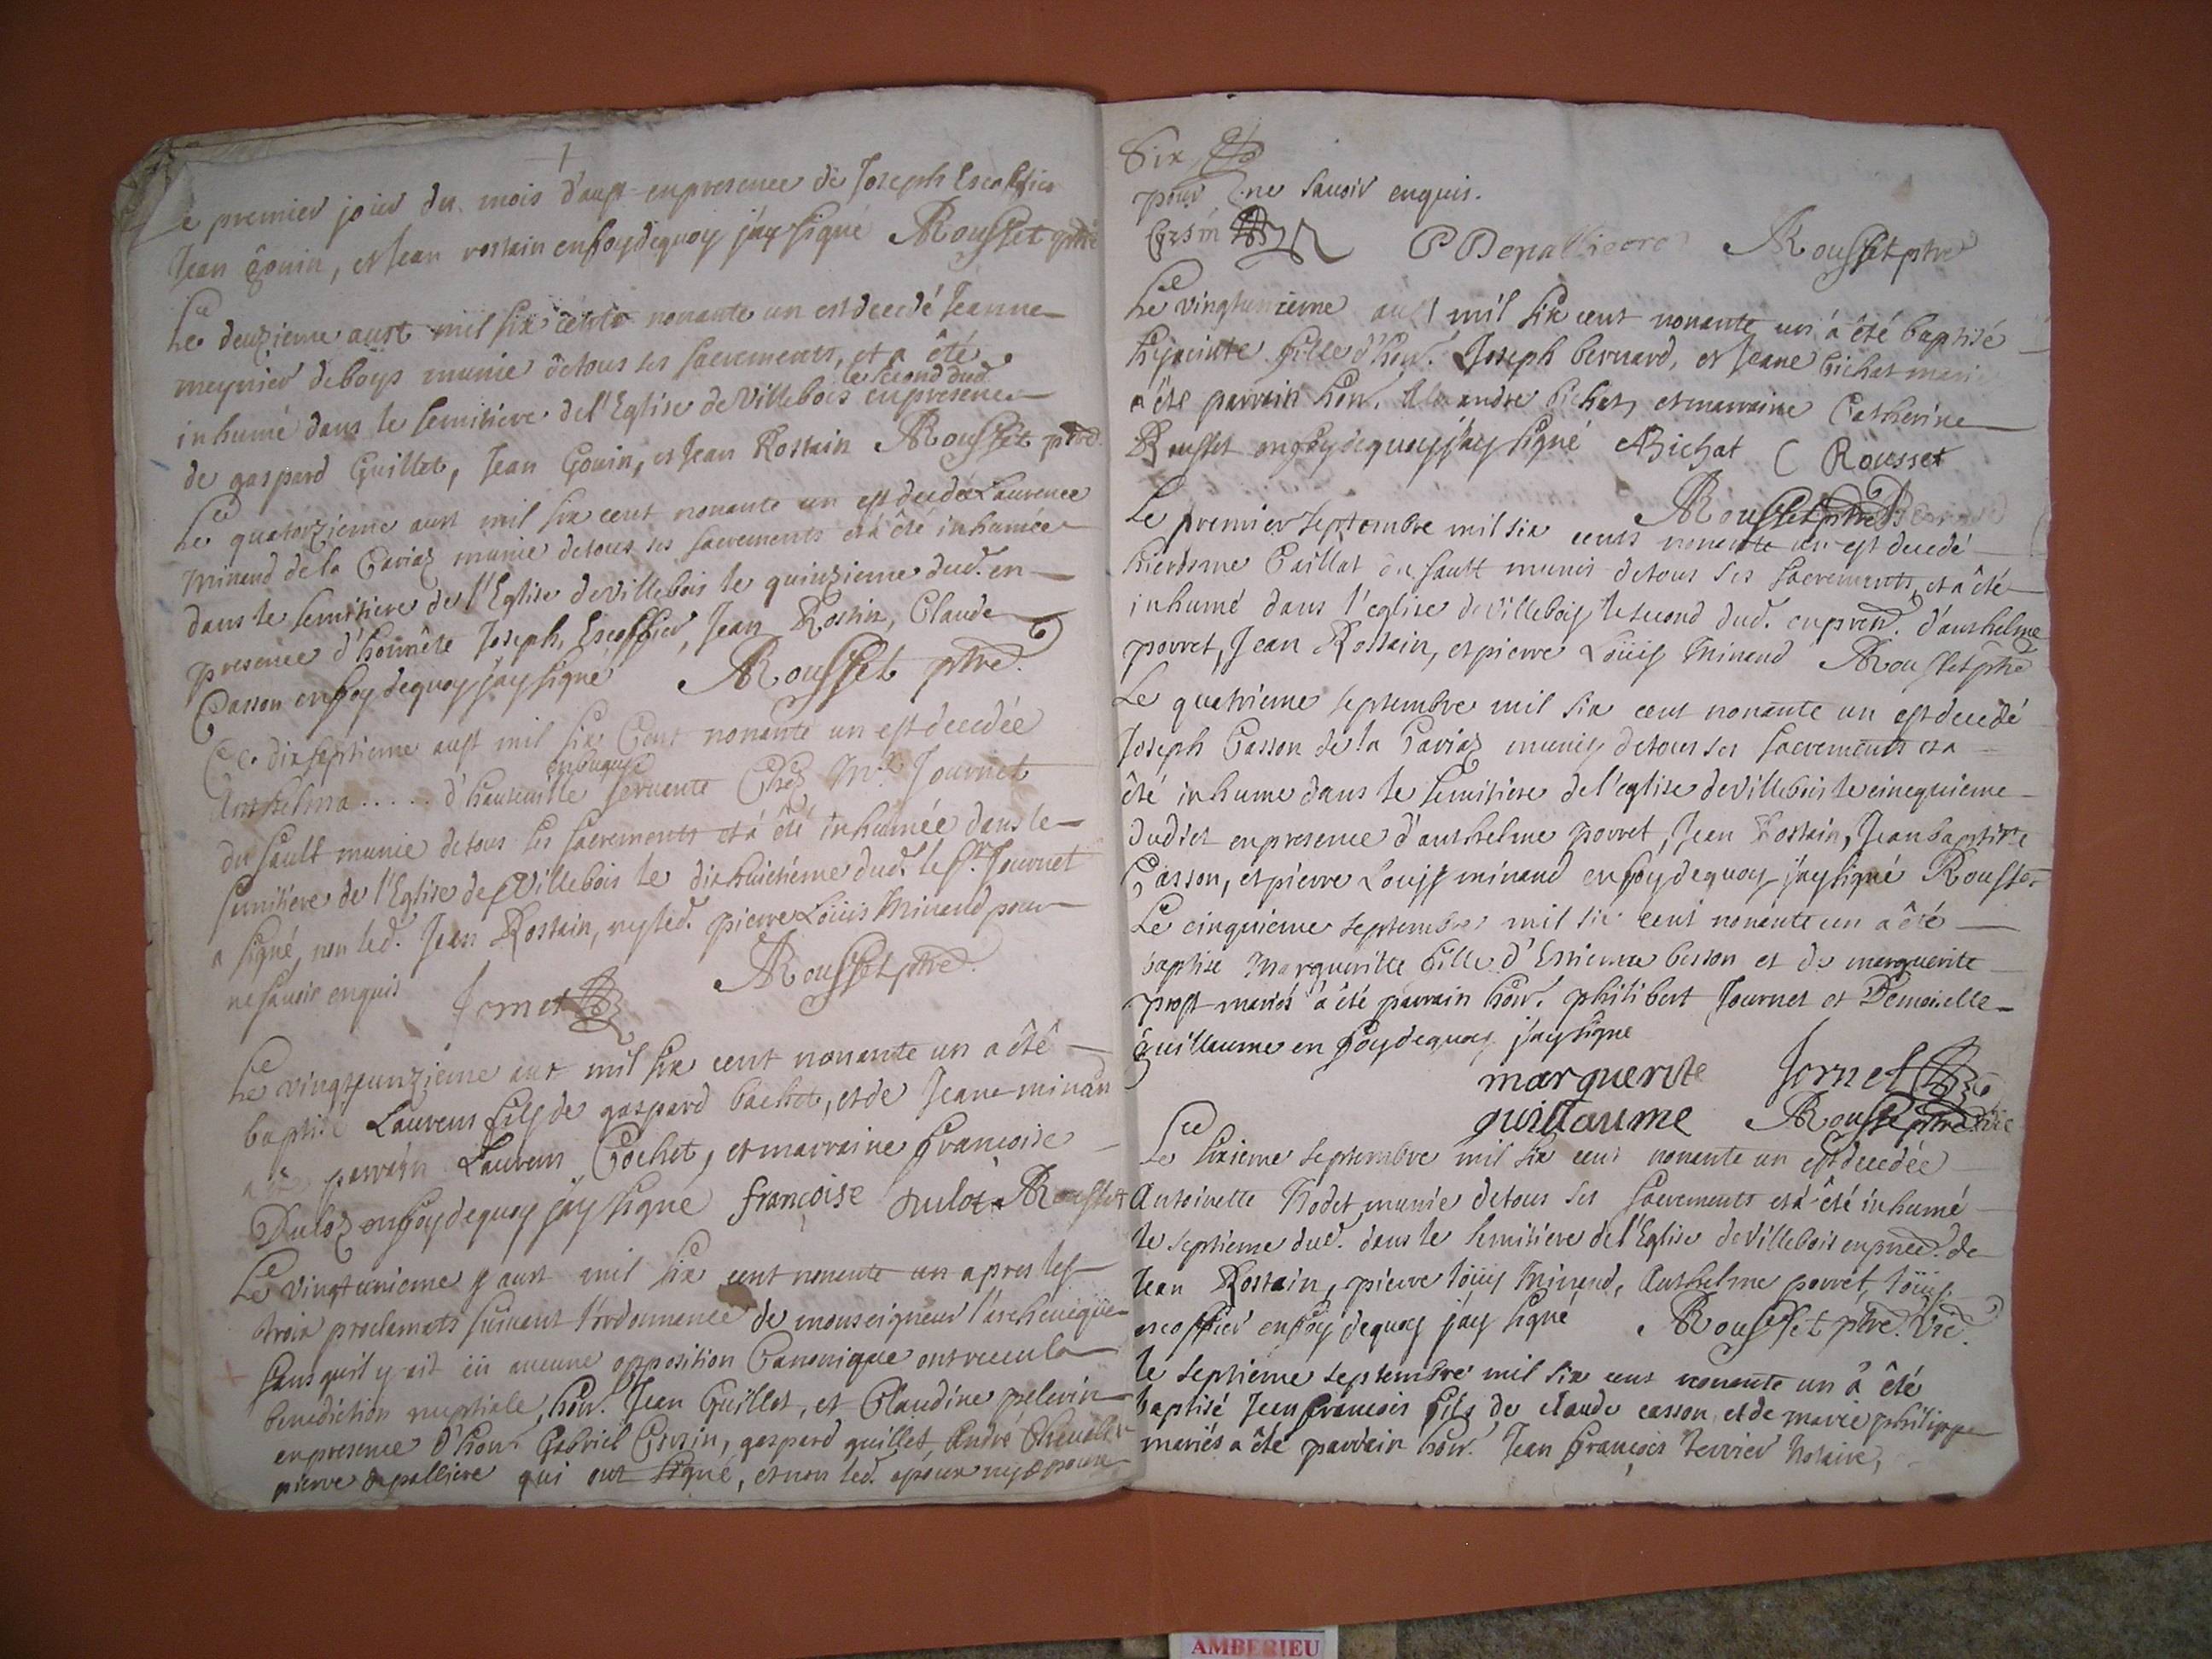 le premier jour du mois d'aust en presence de Joseph Escoffier
Jean Gouin, et Jean rostain en foy de quoy j'ay signé ARousset ptre
Le deuzieme aust mil six cents nonante un est decedé Jeanne
meynier de boys munie de tous ses sacrements, et a été
inhumé dans le semitiere de l'Eglise de Villebois le second dud. en presence
de gaspard Guillet, Jean Gouin, et Jean Rostain ARousset ptre
Le quatorzieme aust mil six cent nonante un est decedée Laurence
minand de la Cariaz munie de tous ses sacrements et a été inhumée
dans le semitiere de l'Eglise de Villebois le quinzieme dud. en
presence d'honnête Joseph Escoffier, Jean Rostin, Claude
Casson en foy de quoy j'ay signé ARousset ptre.
Le dixseptieme aust mil six Cent nonante un est decedée
Anthelma ..... d'hauteville en bugeys servante Chez Mr. Journet
du sault munie de tous ses sacrements et a été inhumée dans le
semitiere de l'Eglise de Villebois le dixhuictiéme dud. le Sr. Journet
a signé, non led. Jean Rostain, ny led. pierre Loüis Minand pour
ne savoir enquis Jornet ARousset ptre.
Le vingtunzieme aust mil six cent nonante un a été
baptisé Laurens fils de gaspard bachet, et de Jeane minan
a été parrain Laurens Cochet, et marraine francoise
Duloz en foy de quoy j'ay signé françoise duloz ARousset
Le vingtunieme aust mil six cent nonante un apres les
trois proclamats suivant l'ordonnance de monseigneur l'archeueque
sans qu'il y ait eü aucune opposition Canonique ont receu la
benediction nuptiale, hon. Jean Guillet, et Claudine pelerin
en presence d'hon. Gabriel Grezin, gaspard guillet, André Chevalier
pierre depalliere qui ont signé, et non led. epoux ny epouse
Six
pour ne savoir enquis.
Gresin PDepalliere ARousset ptre
Le vingtunzieme aust mil six cent nonante un a été baptisé
hyacinte fille d'hon. Joseph bernard, et Jeane bichat mari
a été parrain hon. Alexandre bichat, et marraine Catherine
Rousset en foy de quoy j'ay signé ABichat C Rousset
ARousset ptre
Le premier septembre mil six cents nonante un est decedé
hierosme Caillat du sault munis de tous ses sacrements, et a été
inhumé dans l'eglise de Villebois le second dud. en pres. d'anthelme
porret, Jean Rostain, et pierre Loüis Minand ARousset ptre
Le quatrieme septembre mil six cent nonante un est decedé
Joseph Casson de la Cariaz munis de tous ses sacrements et a
été inhume dans le semitiere de l'eglise de Villebois le cinequieme
dudict en presence d'anthelme porret, Jean Rostain, Jean baptiste
Casson, et pierre Louys minand en foy de quoy j'ay signé Rousset
Le cinquieme septembre mil six cent nonante un a été
baptisé Margueritte fille d'Estienne besson et de marguerite
prost mariés a été parrain hon. philibert Journet et Demoiselle
guillaume en foy de quoy j'ay signe
marguerite Jornet
guillaume ARousset ptre. vic
Le sixieme septembre mil six cent nonante un est decedée
Antoinette Rodet munie de tous ses sacrements et a été inhumé
le septieme dud. dans le semitiere de l'Eglise de Villebois en pnce. de
Jean Rostain, pierre loüis Minand, Anthelme porret, loüis
escoffier en foy de quoy j'ay signé ARousset ptre. Vic.
le septieme septembre mil six cent nonante un a été
baptisé Jean francois fils de claude casson, et de marie philippe
mariés a été parrain hon. Jean françois terrier Notaire,
AMBERIEU